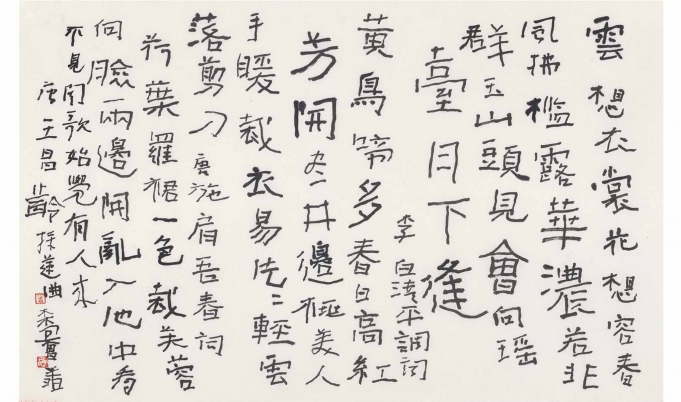 雲想衣裳花想容春
風拂檻露華濃若非
群玉山頭見會向瑶
臺月下逢
李白清平調詞
黃鳥啼多春日高紅
芳開盡井邊桃美人
手暖裁衣易片〻輕雲
落剪刀 唐施肩吾春詞
荷葉羅裙一色裁芙蓉
向臉兩邊開亂入池中看
不見聞歌始覺有人來
唐王昌齡採蓮曲